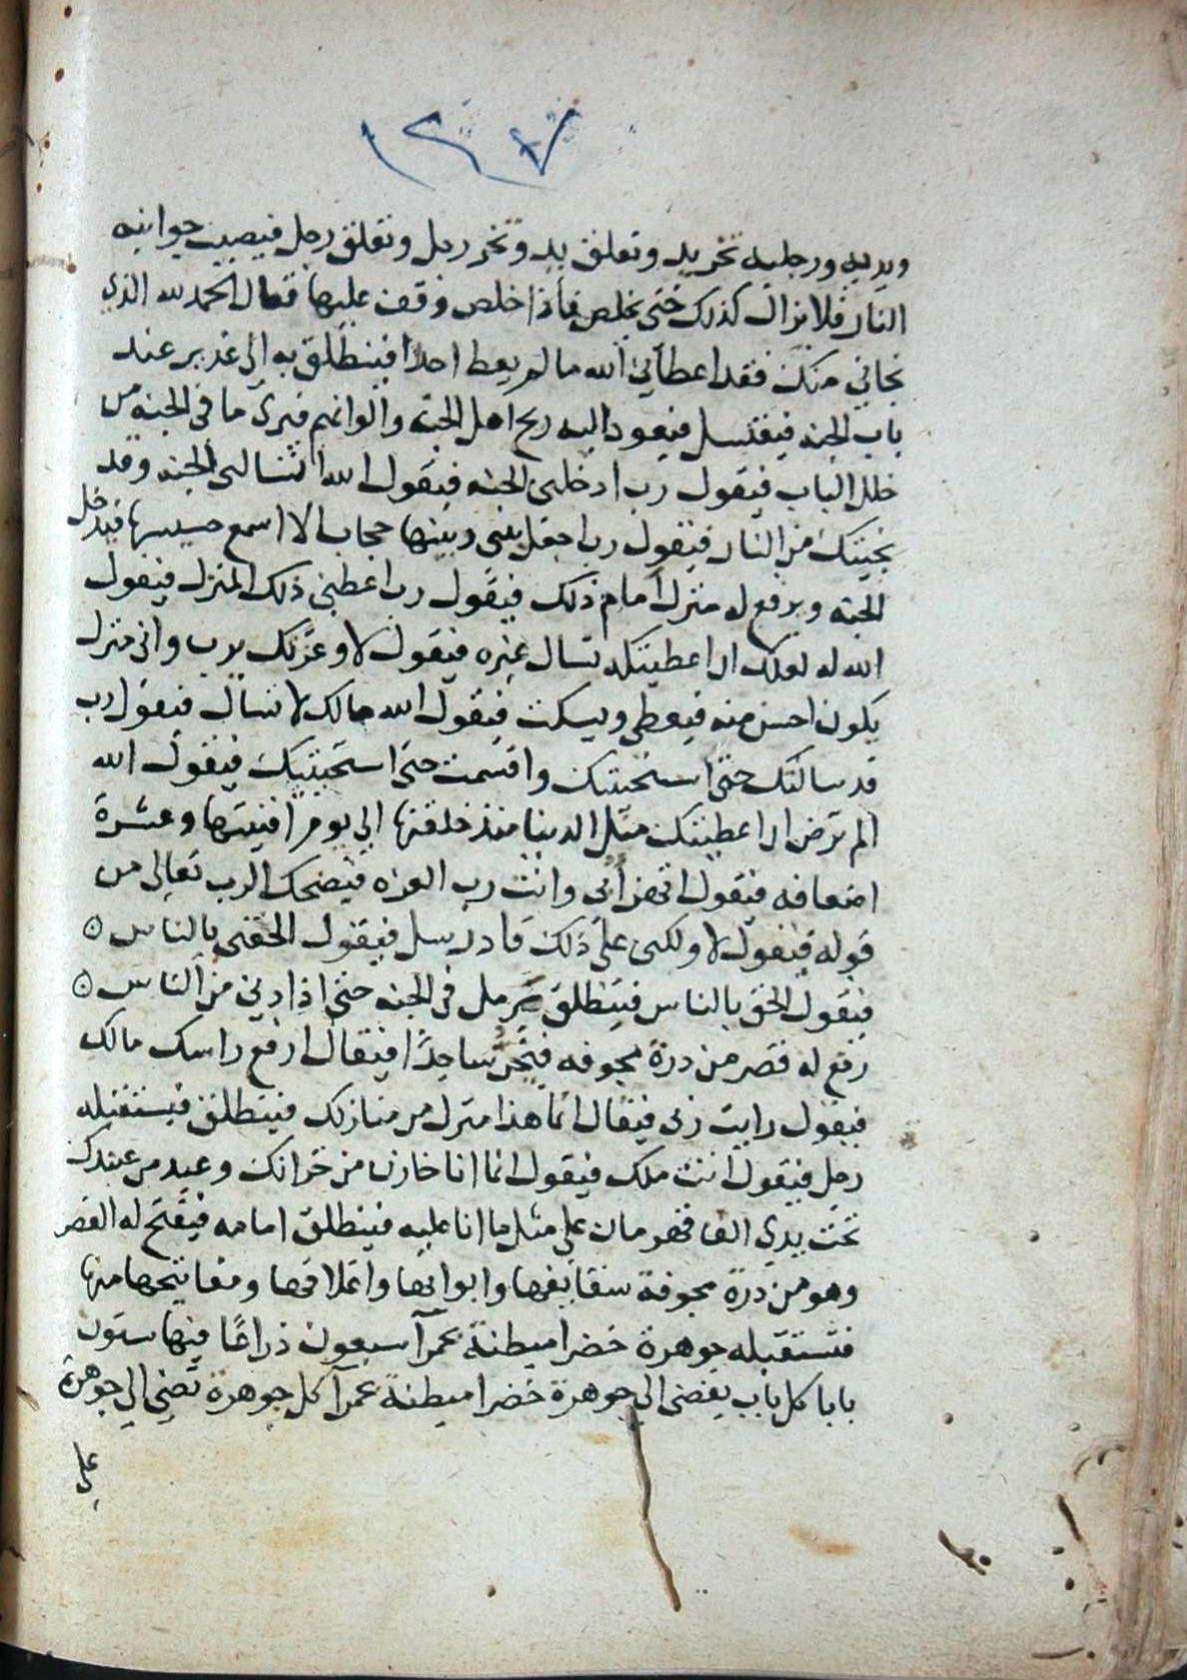 ١٢٧
ويديه ورجليه تخر يد وتعلق يد وتخر رجل وتعلق رجل فيصيب جوانبه
النار فلا يزال كذلك حتى يخلص فاذا خلص وقف عليها فقال الحمد لله الذي
نجاني منك فقد اعطاني الله ما لم يعط احدا فينطلق به الى غدير عند
باب الجنه فيغتسل فيعود اليه ريح اهل الجنة والوانهم فيرى ما في الجنه من
خلل الباب فيقول رب ادخلني الجنه فيقول الله اتسالني الجنه وقد
نجيتك من النار فيقول رب اجعل بيني وبينها حجابا لا اسمع حسيسها فيدخل
الجنه ويرفع له منزل امام ذلك فيقول رب اعطني ذلك المنزل فيقول
الله له لعلك ان اعطيتكه تسال غيره فيقول لا وعزتك يرب واني منزل
يكون احسن منه فيعطى ويسكت فيقول الله مالك لا تسال فيقول رب
قد سالتك حتى استحيتك واقسمت حتى استحييتك فيقول الله
الم ترض ان اعطيتك مثل الدنيا منذ خلقتها الي يوم افنيتها وعشرة
اضعافه فيقول اتهزأني وانت رب العزه فيضحك الرب تعالى من
قوله فيقول لا ولكني على ذلك قادر سل فيقول الحقني بالناس ٥
فيقول الحق بالناس فينطلق يرمل في الجنه حتى اذا دني من الناس ٥
رفع له قصر من درة مجوفه فيخر ساجدًا فيقال ارفع راسك مالك
فيقول رايت ربي فيقال انما هذا منزل من منازلك فينطلق فيستقبله
رجل فيقول انت ملك فيقول انما انا خازن من خزانك وعبد من عبيدك
تحت يدي الف قهرمان علي مثل ما انا عليه فينطلق امامه فيفتح له القصر
وهو من درة مجوفة سقايفها وابوابها واغلاقها ومفاتيحها منها
فتستقبله جوهرة خضرا مبطنة بحمرآ سبعون ذراعًا فيها ستون
بابا كل باب يفضى الي جوهرة خضرا مبطنة بحمرآ كل جوهرة تفضي الي جوهرة
على